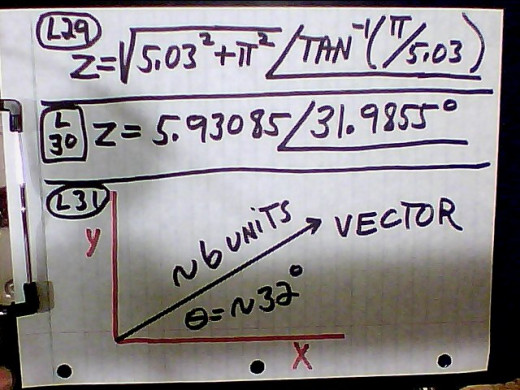 L29
Z=√5.03²+π² /TAN⁻¹(π/5.03)
L30
Z=5.93085/31.9855°
L31
Y
~6 UNITS
VECTOR
θ=~32°
X